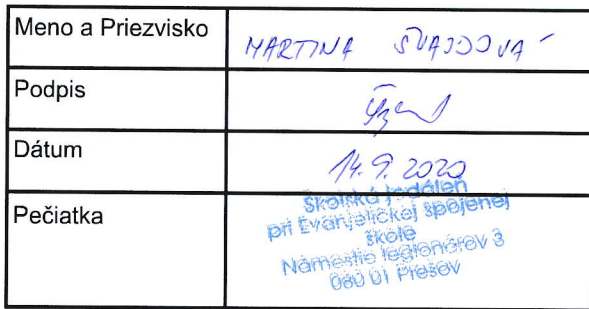 Meno a Priezvisko MARTINA ŠVAJDOVÁ
Podpis
Dátum 14.9.2020
Pečiatka
Školská jedáleň
pri Evanjelickej spojenej
škole
Námestie legionárov 3
080 01 Prešov